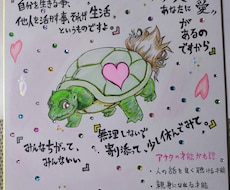 自分を生きる事、
他人を活かす事、それが“生活
というものですよ。
あなたに愛
があるの
ですから
無理しないで
寄り添って、少し休んでみて。
『みんなちがって、
みんないい
アナタの才能かも!?
・人の話も良く聴ける才能
・親身になれる才能